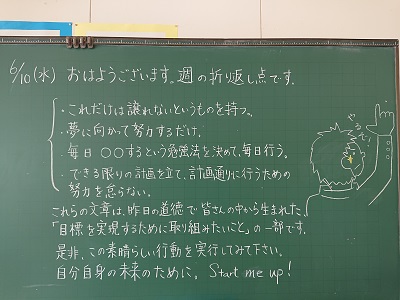 6/10(水) おはようございます。週の折り返し点です。
・これだけは譲れないというものを持つ。
・夢に向かって努力するだけ。
・毎日 〇〇するという勉強法を決めて、毎日行う。
・できる限りの計画を立て、計画通りに行うための
努力を怠らない。
これらの文章は、昨日の道徳で皆さんの中から生まれた、
「目標を実現するために取り組みたいこと」の一部です。
是非、この素晴らしい行動を実行してみて下さい。
自分自身の未来のために。 Start me up!